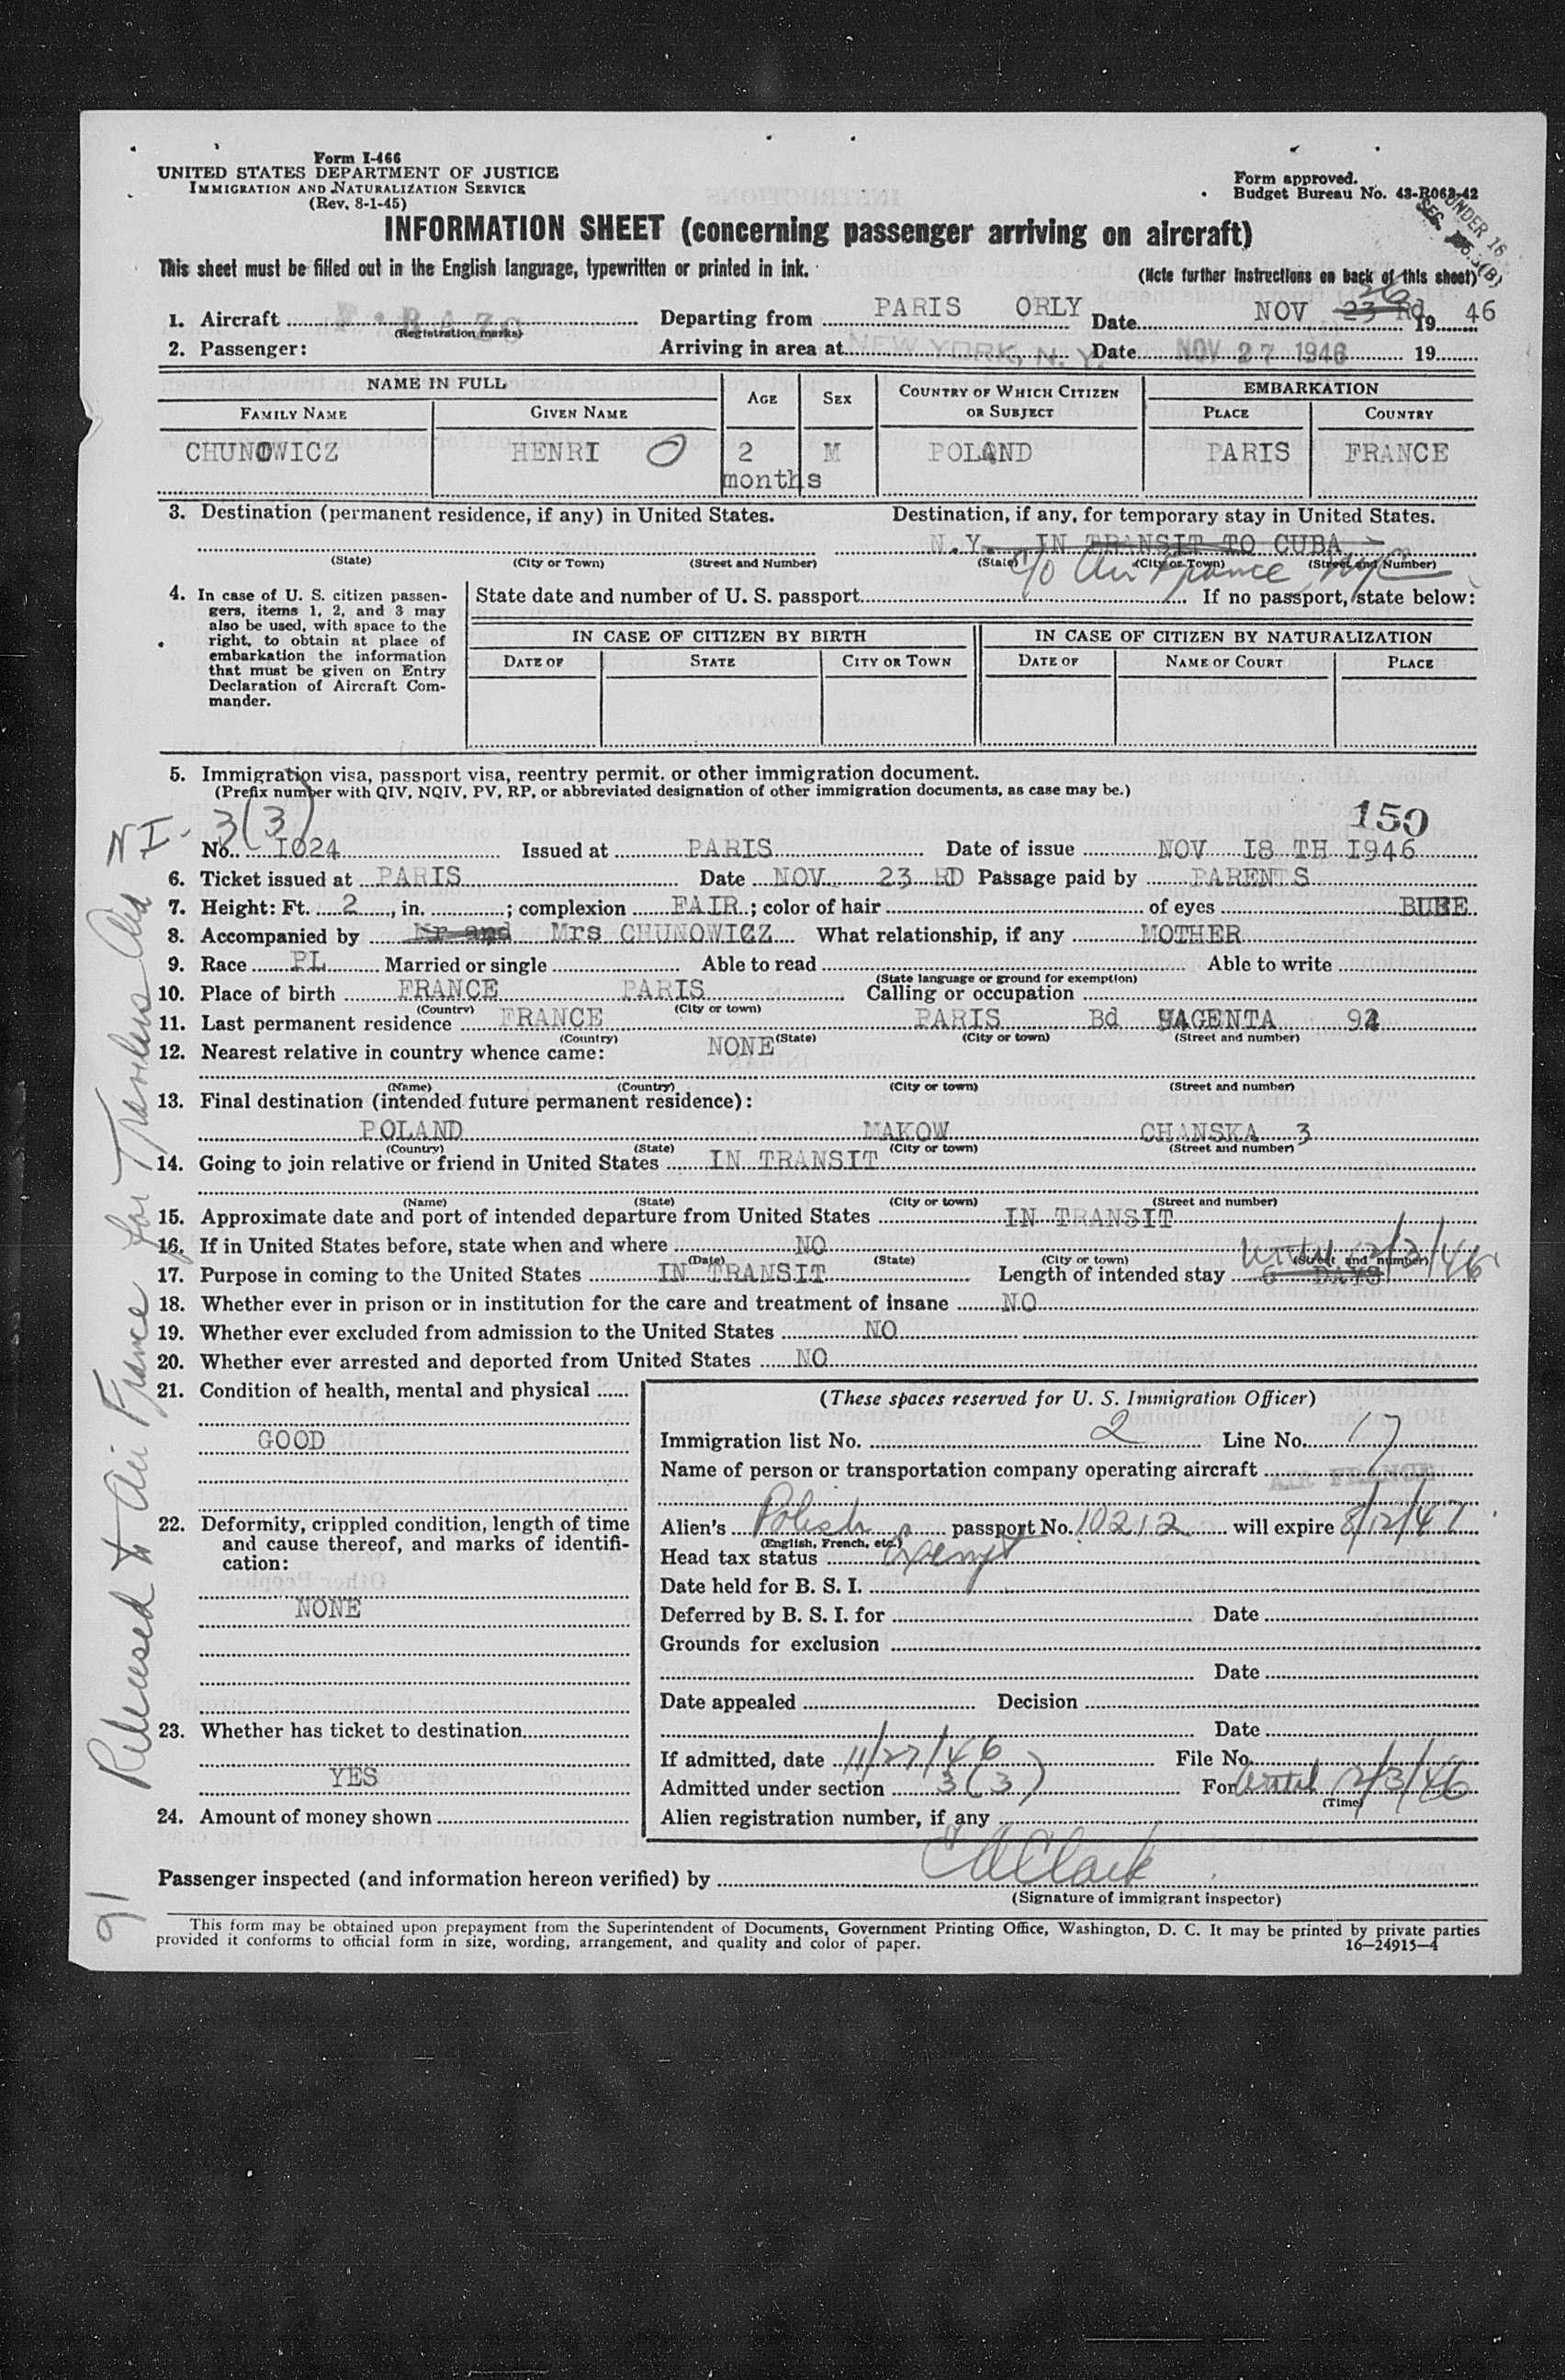 Form I-466
UNITED STATES DEPARTMENT OF JUSTICE
IMMIGRATION AND NATURALIZATION SERVICE
(Rev. 8-1-45)
Form approved.
Budget Bureau No. 43-R063-42
UNDER 16
SEC.
INFORMATION SHEET (concerning passenger arriving on aircraft)
This sheet must be filled out in the English language, typewritten or printed in ink.
(Note further instructions on back of this sheet)
1. Aircraft
(Registration marks)
Departing from PARIS ORLY Date NOV 23 Rd 26 19 46
2. Passenger:
Arriving in area at NEW YORK, N. Y. Date NOV 27 1946 19
NAME IN FULL AGE SEX COUNTRY OF WHICH CITIZEN OR SUBJECT EMBARKATION
FAMILY NAME GIVEN NAME PLACE COUNTRY
CHUNOWICZ HENRI 2 months M POLAND PARIS FRANCE
3. Destination (permanent residence, if any) in United States. Destination, if any, for temporary stay in United States.
N.Y. IN TRANSIT TO CUBA
(State) (City or Town) (Street and Number) (State) (City or Town) (Street and Number)
c/o Air France, NYC
4. In case of U. S. citizen passengers, items 1, 2, and 3 may
also be used, with space to the
right, to obtain at place of
embarkation the information
that must be given on Entry
Declaration of Aircraft Commander.
State date and number of U. S. passport If no passport, state below:
IN CASE OF CITIZEN BY BIRTH IN CASE OF CITIZEN BY NATURALIZATION
DATE OF STATE CITY OR TOWN DATE OF NAME OF COURT PLACE
5. Immigration visa, passport visa, reentry permit. or other immigration document.
(Prefix number with QIV, NQIV, PV, RP, or abbreviated designation of other immigration documents, as case may be.)
NI- 3(3)
150
No. I024 Issued at PARIS Date of issue NOV I8 TH I946
6. Ticket issued at PARIS Date NOV 23 RD Passage paid by PARENTS
7. Height: Ft. 2, in. ; complexion FAIR; color of hair of eyes
8. Accompanied by Mr and Mrs CHUNOWICZ What relationship, if any MOTHER
9. Race PL Married or single Able to read Able to write
(State language or ground for exemption)
10. Place of birth FRANCE PARIS Calling or occupation
(Country) (City or town)
11. Last permanent residence FRANCE PARIS Bd MAGENTA
(Country) (State) (City or town) (Street and number)
12. Nearest relative in country whence came: NONE
(Name) (Country) (City or town) (Street and number)
13. Final destination (intended future permanent residence):
POLAND MAKOW CHANSKA 3
(Country) (State) (City or town) (Street and number)
14. Going to join relative or friend in United States IN TRANSIT
(Name) (State) (City or town) (Street and number)
15. Approximate date and port of intended departure from United States IN TRANSIT
16. If in United States before, state when and where NO
(Date) (State) (City or town) (Street and number)
until 12/3/46
17. Purpose in coming to the United States IN TRANSIT Length of intended stay 6 DAYS
18. Whether ever in prison or in institution for the care and treatment of insane NO
19. Whether ever excluded from admission to the United States NO
20. Whether ever arrested and deported from United States NO
21. Condition of health, mental and physical
GOOD
22. Deformity, crippled condition, length of time
and cause thereof, and marks of identification:
NONE
23. Whether has ticket to destination
YES
24. Amount of money shown
(These spaces reserved for U. S. Immigration Officer)
Immigration list No. 2 Line No. 17
Name of person or transportation company operating aircraft AIR FRANCE
Alien's Polish passport No. 10212 will expire 8/12/47
(English, French, etc.)
Head tax status Exempt
Date held for B. S. I.
Deferred by B. S. I. for Date
Grounds for exclusion
Date
Date appealed Decision
Date
If admitted, date 11/27/46 File No.
Admitted under section 3(3) For until 12/3/46
(Time)
Alien registration number, if any
Passenger inspected (and information hereon verified) by
(Signature of immigrant inspector)
This form may be obtained upon prepayment from the Superintendent of Documents, Government Printing Office, Washington, D. C. It may be printed by private parties
provided it conforms to official form in size, wording, arrangement, and quality and color of paper. 16—24915-4
Released to Air France for